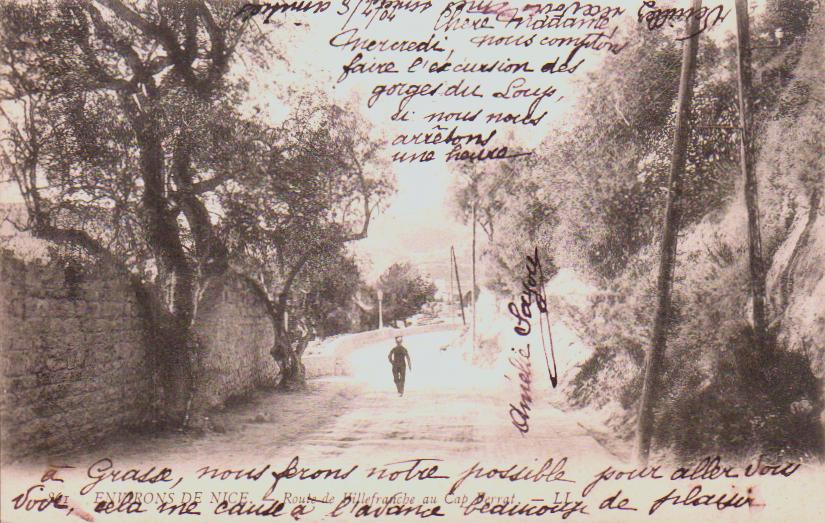 3/4/04
Chère Madame
Mercredi, nous comptons
faire l'excursion des
gorges du Loup,
si nous nous
arrêtons
une heure
à Grasse, nous ferons notre possible pour aller vous
voir, cela me cause à l'avance beaucoup de plaisir
Amélie
ENVIRONS DE NICE. - Route de Villefranche au Cap Ferrat. - LL